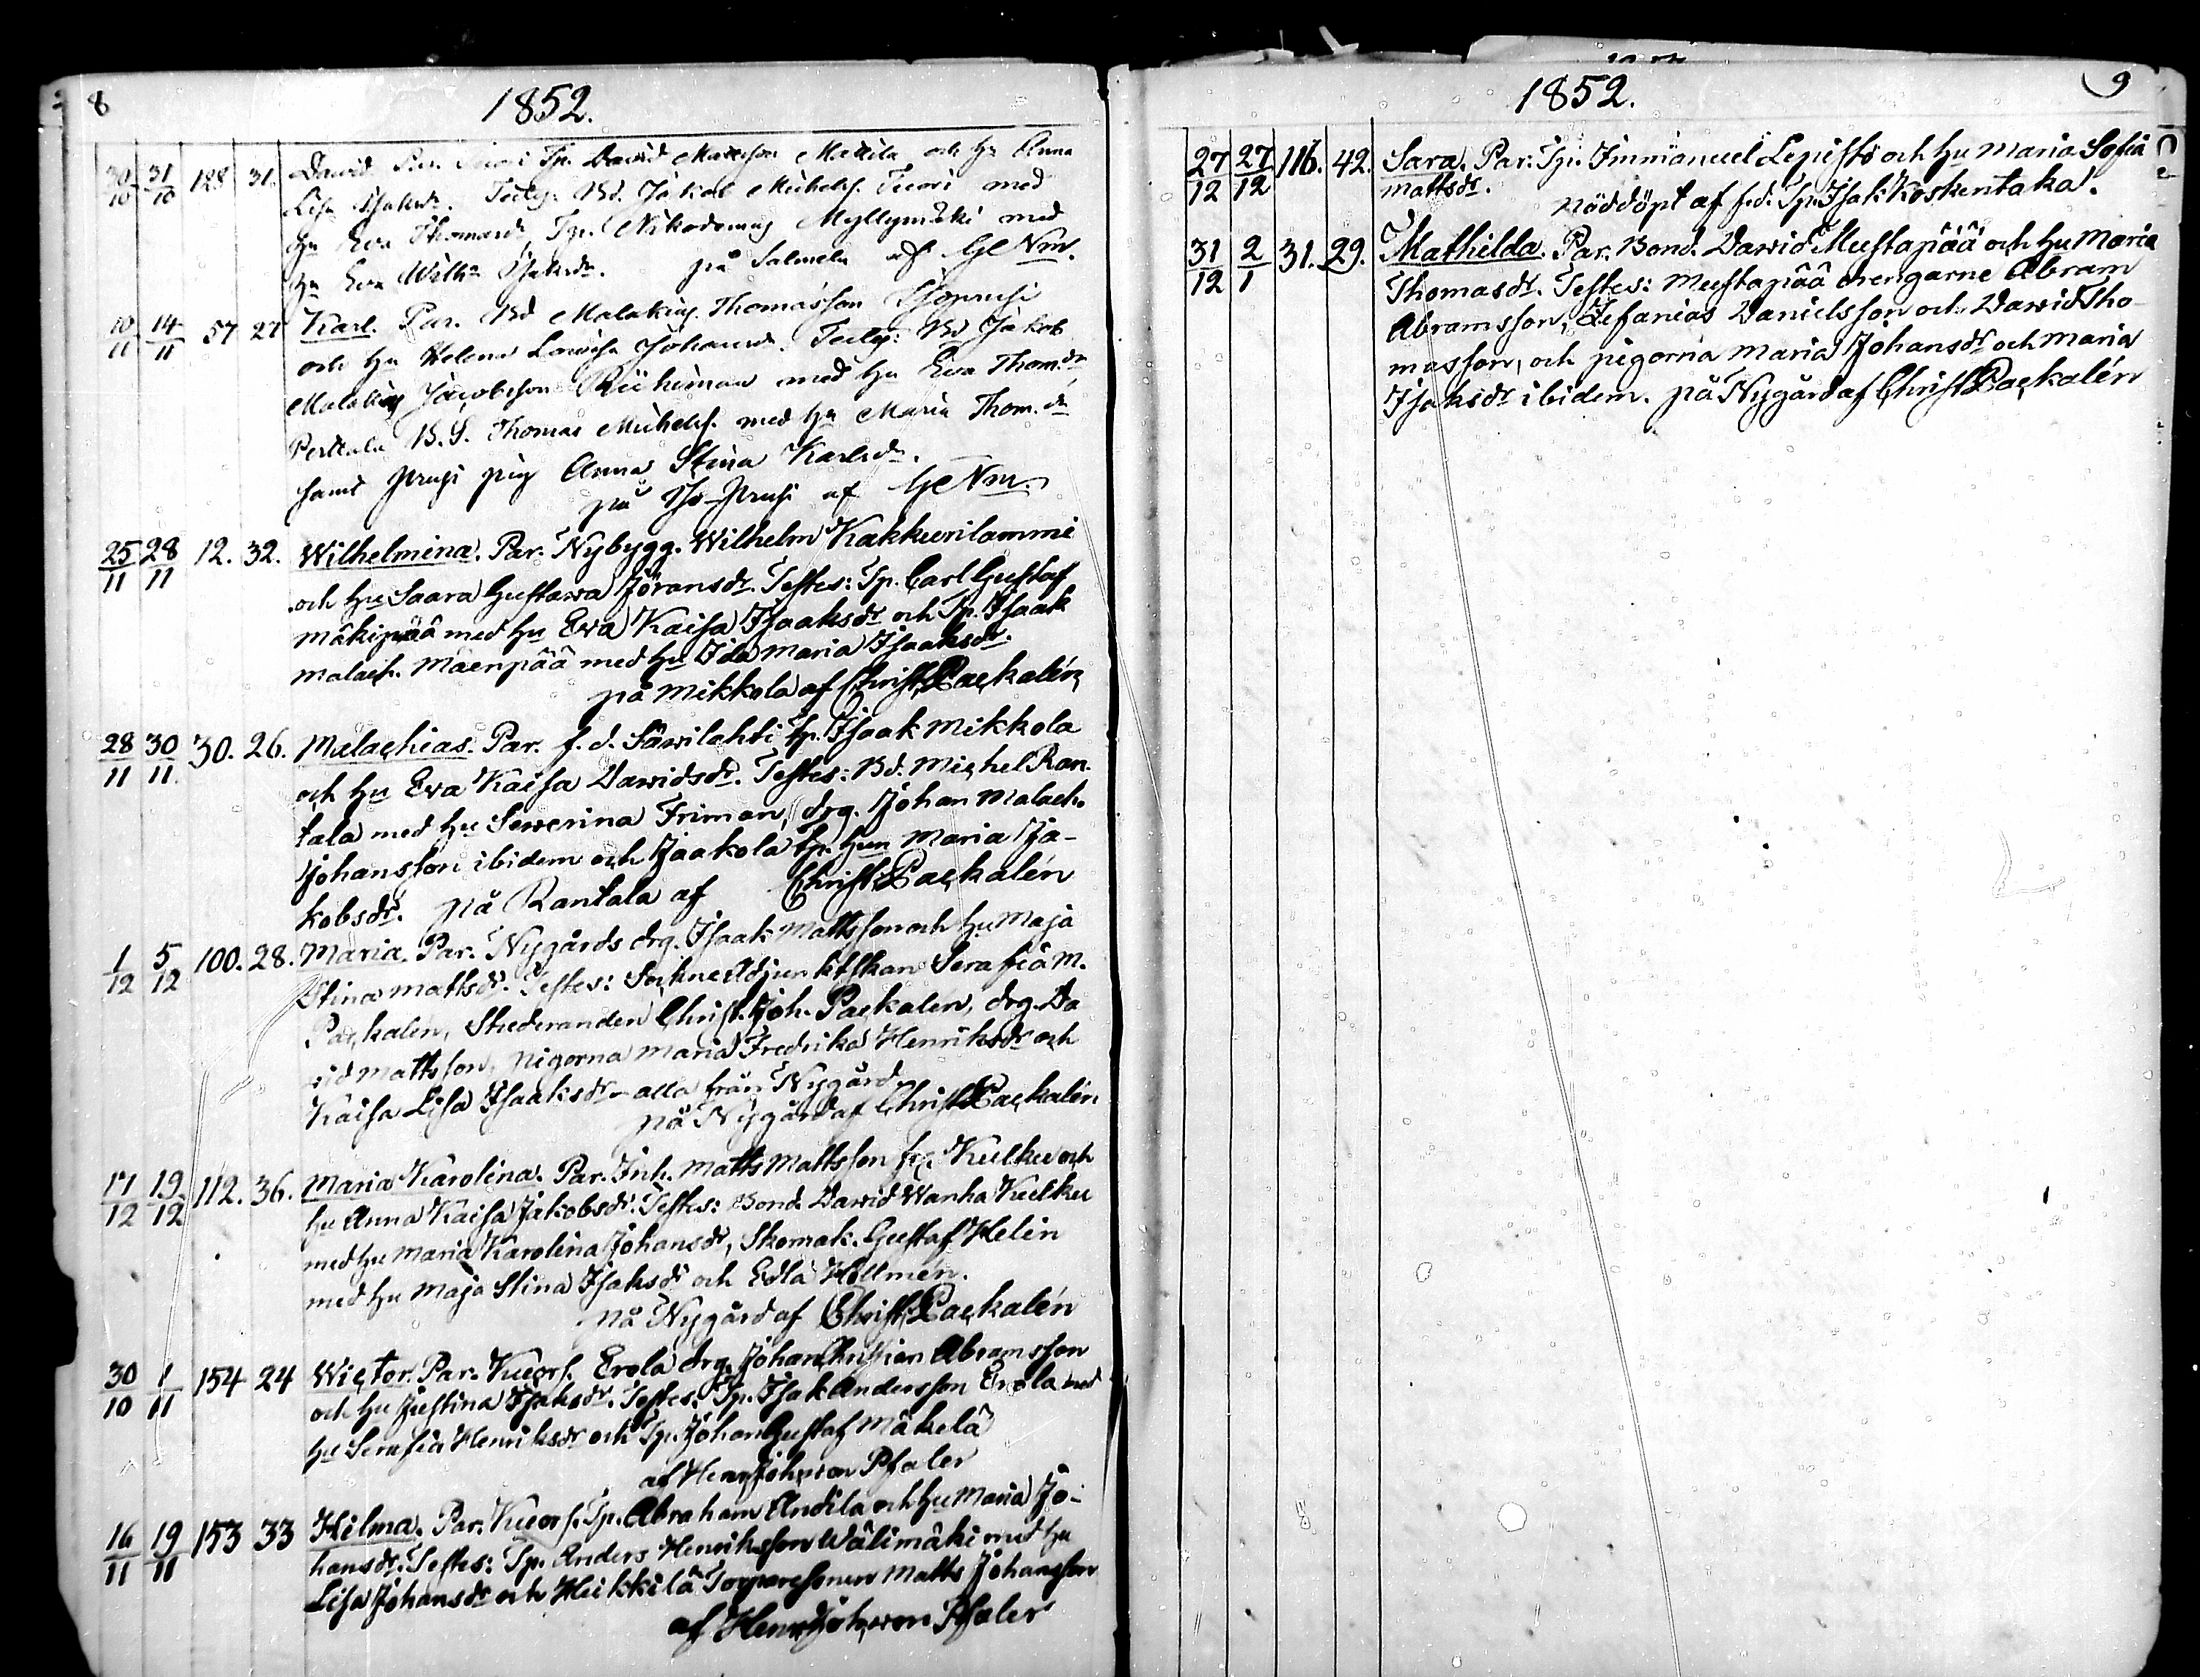 8
1852.
30/10 31/10 128 31. David Par. Tp. David Mattsson Mattila och hu Anna
Lisa Isaksdr. Testes: Bd. Jakob Michelss. Tuori med
hu Eva Thomasdr, Tp. Nikodemus Myllymäki med
hu Eva Wilh:a Isaksdr. på Salmela af GENm.
10/11 14/11 57 27 Karl. Par. Bd Malakias Thomasson
och hu Helena Lovisa Johansdr. Testes: Bd Jakob
Malakias Jacobsson med hu Eva Thom.dr
Perttula B.S. Thomas Michelss. med hu Maria Thom.dr
samt pig Anna Stina Karlsdr.
på af GENm.
25/11 28/11 12. 32. Wilhelmina. Par. Nybygg. Wilhelm Kakkurilammi
och hu Saara Gustawa Jöransdr. Testes: Tp. Carl Gustaf
Mäkipää med hu Ewa Kaisa Isaaksdr och Tp. Isaak
Malach. Mäenpää med hu Ida Maria Isaaksdr.
på Mikkola af Christ. Packalén
28/11 30/11. 30. 26. Malachias. Par. f. d. Sawilahti tp. Isaak Mikkola
och hu Ewa Kaisa Dawidsdr. Testes: Bd. Michel Ran-
tala med hu Sewerina Friman, drg. Johan Malach.
Johansson ibidem och Jaakola tp. hun Maria Ja-
kobsdr. på Rantala af Christ. Packalén
1/12 5/12 100. 28. Maria. Par. Nygårds drg. Isaak Mattsson och hu Maja
Stina Mattsdr. Testes: Sockne Adjunktskan Serafia M.
Packalen, Studeranden Christ. Joh. Packalén, drg. Da
vid Mattsson, pigorna Maria Fredrika Henriksdr och
Kaisa Lisa Isaaksdr – alla från Nygård.
på Nygård af Christ. Packalén
17/12 19/12 112. 36. Maria Karolina. Par. Inh. Matts Mattsson fr. Kulku och
hu Anna Kaisa Jakobsdr. Testes: Bond. Dawid Wanha Kulku
med hu Maria Karolina Johansdr, Skomak. Gustaf Helin
med hu Maja Stina Isaksdr och Edla Hollmén.
på Nygård af Christ. Packalén
30/10 1/11 154 24 Wictor. Par. Kuorf. Erola drg. Johan Christian Abramsson
och hu Justina Isaksdr. Testes. Tp. Isak Andersson Erola med
hu Serafia Henriksdr och Tp. Johan Gustaf Mäkelä
af Henr. Joh. von Pfaler
16/11 19/11 153 33 Hilma. Par. Kuorf. Tp. Abraham Andila och hu Maria Jo-
hansdr. Testes: Tp. Anders Henriksson Wälimäki med hu
Lisa Johansdr och Heikkilä Torparesonen Matts Johansson
af Henr. Joh. von Pfaler
1852.
9
27/12 27/12 116. 42. Sara. Par. Tp. Immanuel Lepistö och hu Maria Sofia
Mattsdr. nöddöpt af f.d. Tp. Isak Koskentaka.
31/12 2/1 31. 29. Mathilda. Par. Bond. Dawid Mustapää och hu Maria
Thomasdr. Testes: Mustapää drengarne Abram
Abramsson, Zefanias Danielsson och Dawid Tho-
masson, och pigorna Maria Johansdr och Maria
Isaksdr ibidem. på Nygård af Christ. Packalén